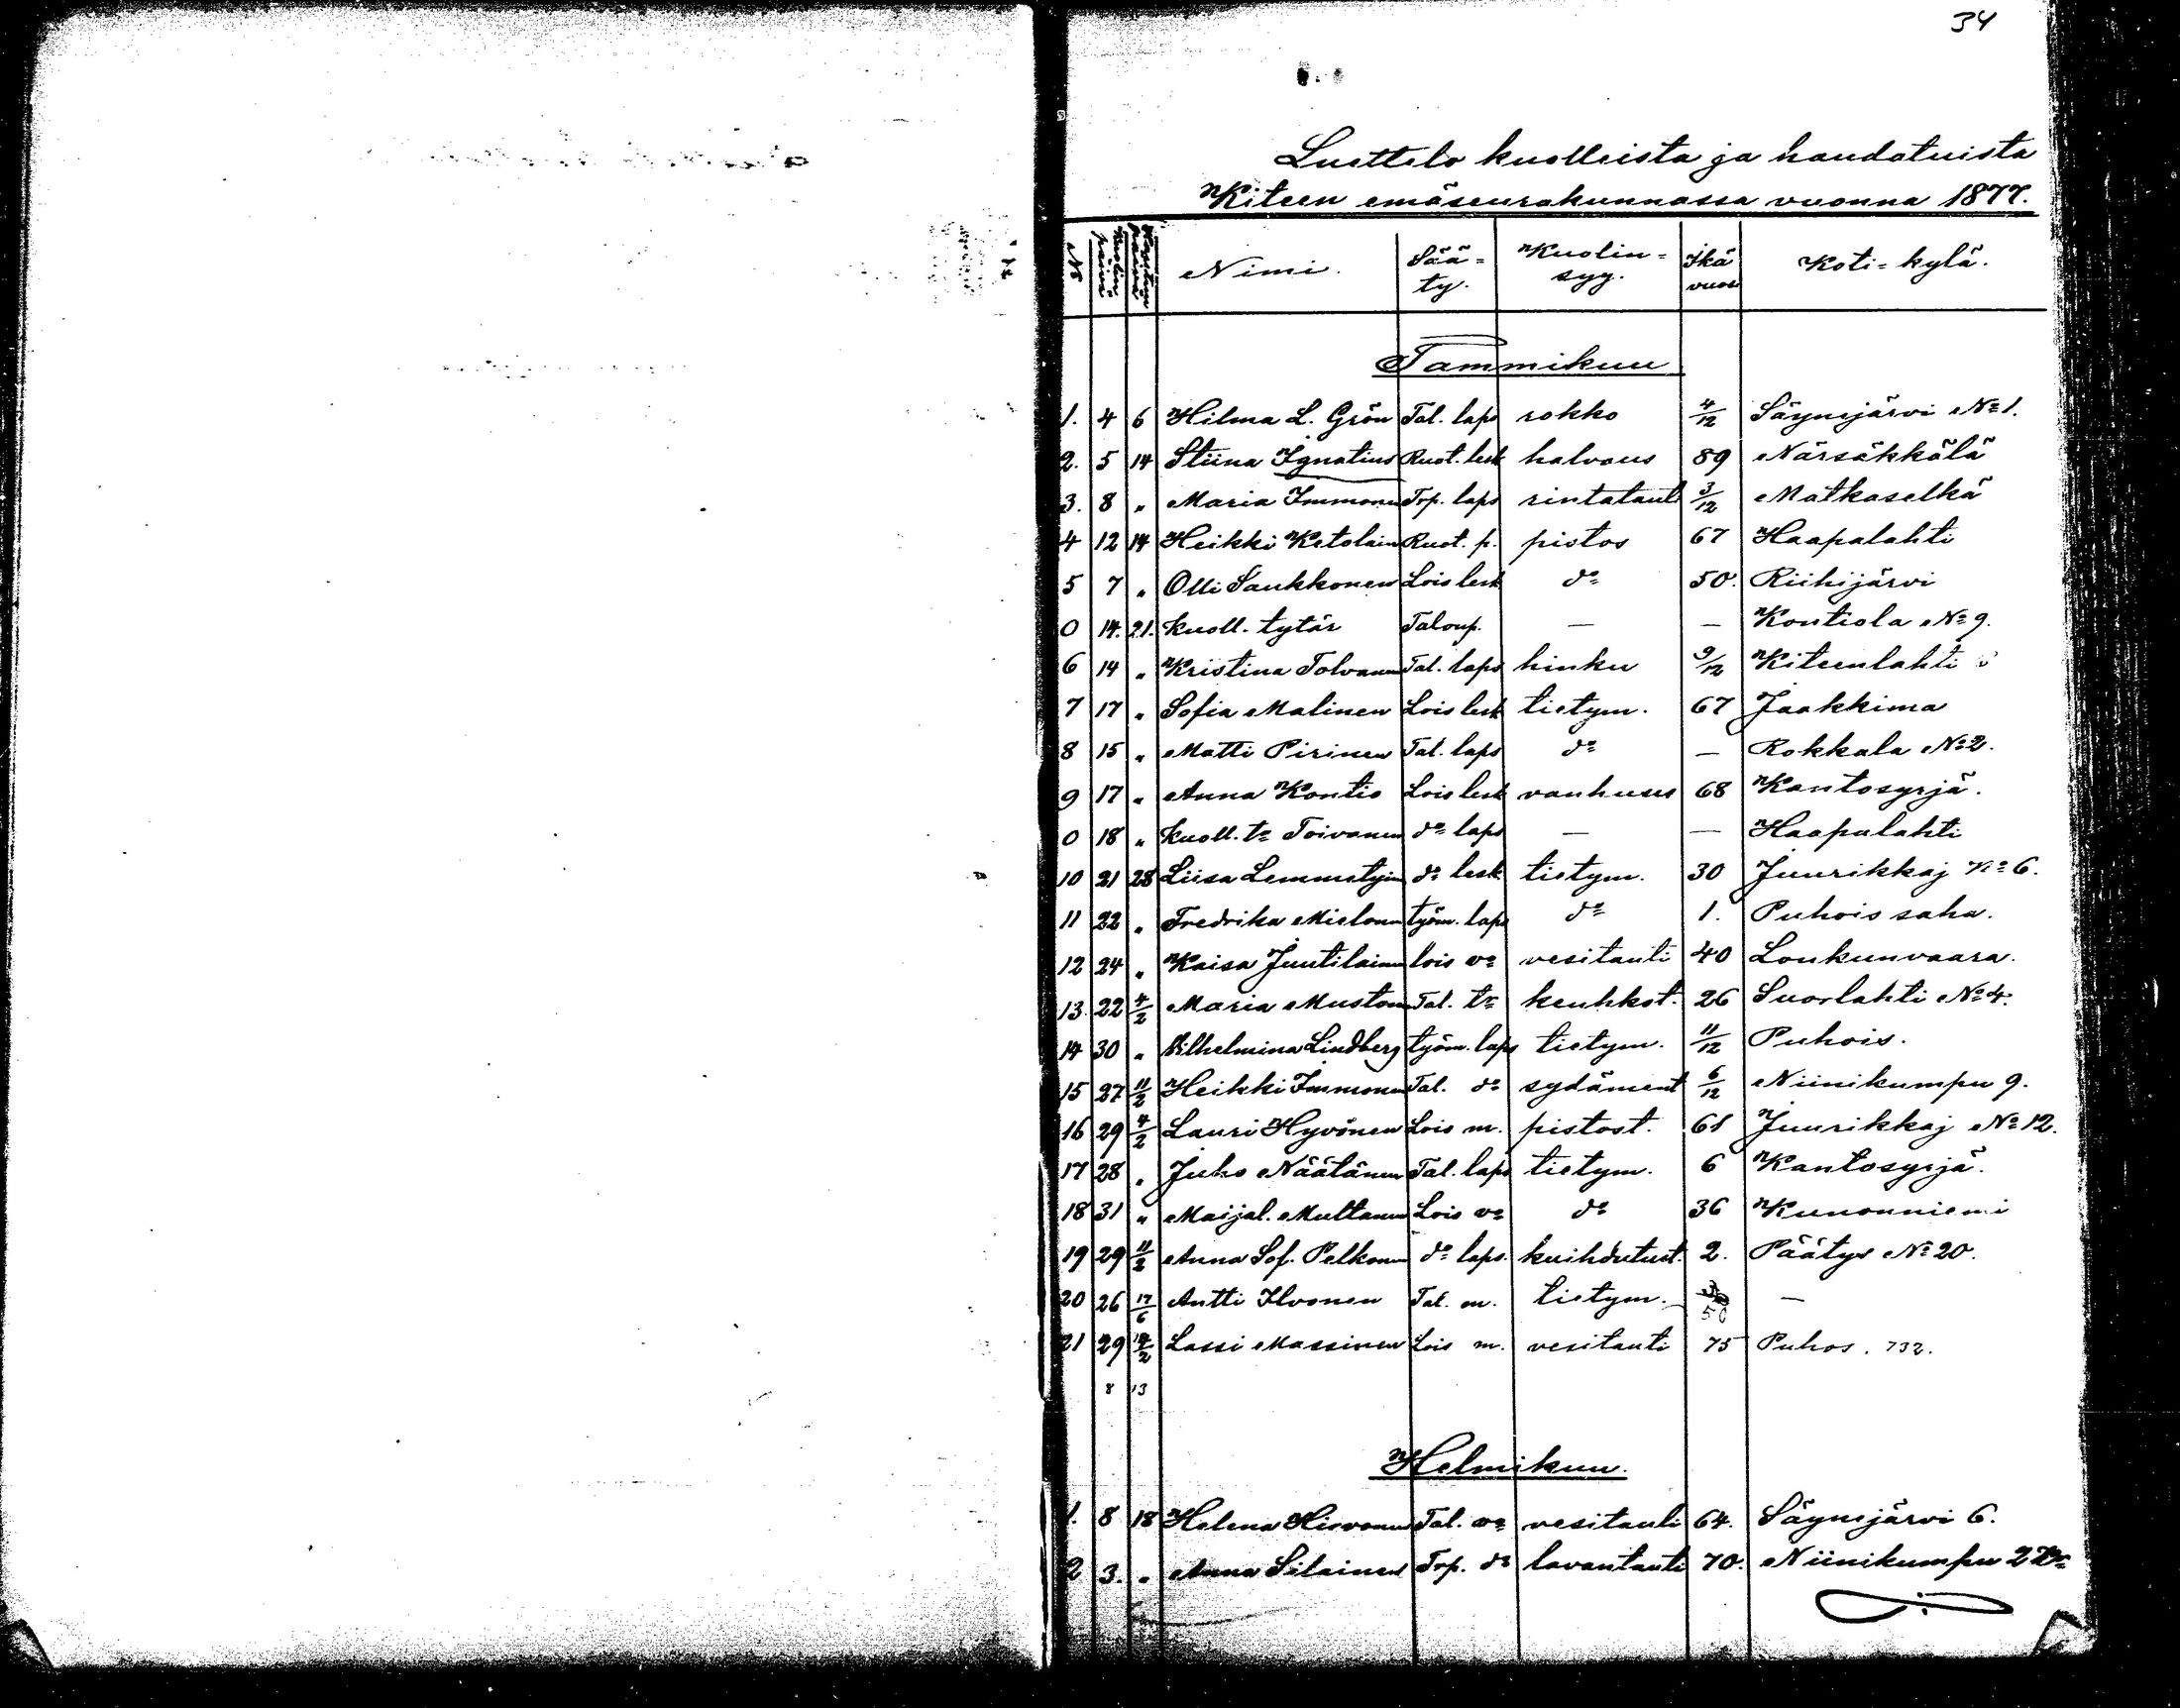 34
Luettelo kuolleista ja haudatuista
Kiteen emäseurakunnassa vuonna 1877.
No Kuolinpäivä Nimi. Sää=ty. Kuolin=syy. Ikä vuosi Koti=kylä.
Tammikuu
1. 4 6 Hilma L. Grön Tal. laps rokko 4/12 Säynejärvi No 1.
2. 5 14 Stiina Ignatius Ruot. lesk halvaus 89 Närsäkkälä
3. 8 " Maria Immonen Trp. laps rintataut 3/12 Matkaselkä
4 12 14 Heikki Ketolain Ruot. p. pistos 67 Haapalahti
5 7 " Olli Saukkonen Lois lesk do 50. Riihijärvi
0 14. 21. kuoll. tytär Taloup. — — Kontiola No 9.
6 14 " Kristina Tolvanen Tal. laps hinku 9/12 Kiteenlahti
7 17 " Sofia Malinen Lois lesk tietym. 67 Jaakkima
8 15 " Matti Pirinen Tal. laps do — Rokkala No 2.
9 17 " Anna Kontio Lois lesk vanhuus 68 Kantosyrjä.
0 18 " kuoll. to Toivanen do laps — — Haapalahti
10 21 28 Liisa Lemmetyin do lesk. tietym. 30 Juurikkaj No 6.
11 22 " Fredrika Mielonen työm. laps do 1. Puhois saha.
12 24 " Kaisa Juutilainen lois vo vesitauti 40 Loukunvaara.
13. 22 4/2 Maria Muston Tal. tr keuhkot. 26 Suorlahti No 4.
14 30 " Vilhelmina Lindberg työm. laps tietym. 11/12 Puhois.
15 27 11/2 Heikki Immonen Tal. do sydäment 6/12 Niinikumpu 9.
16 29 4/2 Lauri Hyvönen Lois m. pistost. 61 Juurikkaj No 12.
17 28 " Juho Näätänen Tal. laps tietym. 6 Kantosyrjä.
18 31 " Maijal. Multanen Lois vo do 36 Kunonniemi
19 29 11/2 Anna Sof. Pelkonen do laps. kuihdutust. 2. Päätys No 20.
20 26 17/6 Antti Ilvonen Tal. m. tietym. 50 —
21 29 18/2 Lassi Massinen Lois m. vesitauti 75 Puhos. 732.
8 13
Helmikuu.
1. 8 18 Helena Hirvonen Tal. vo vesitauti 64. Säynejärvi 6.
2 3. " Anna Silainen Trp. do lavantauti 70. Niinikumpu 2